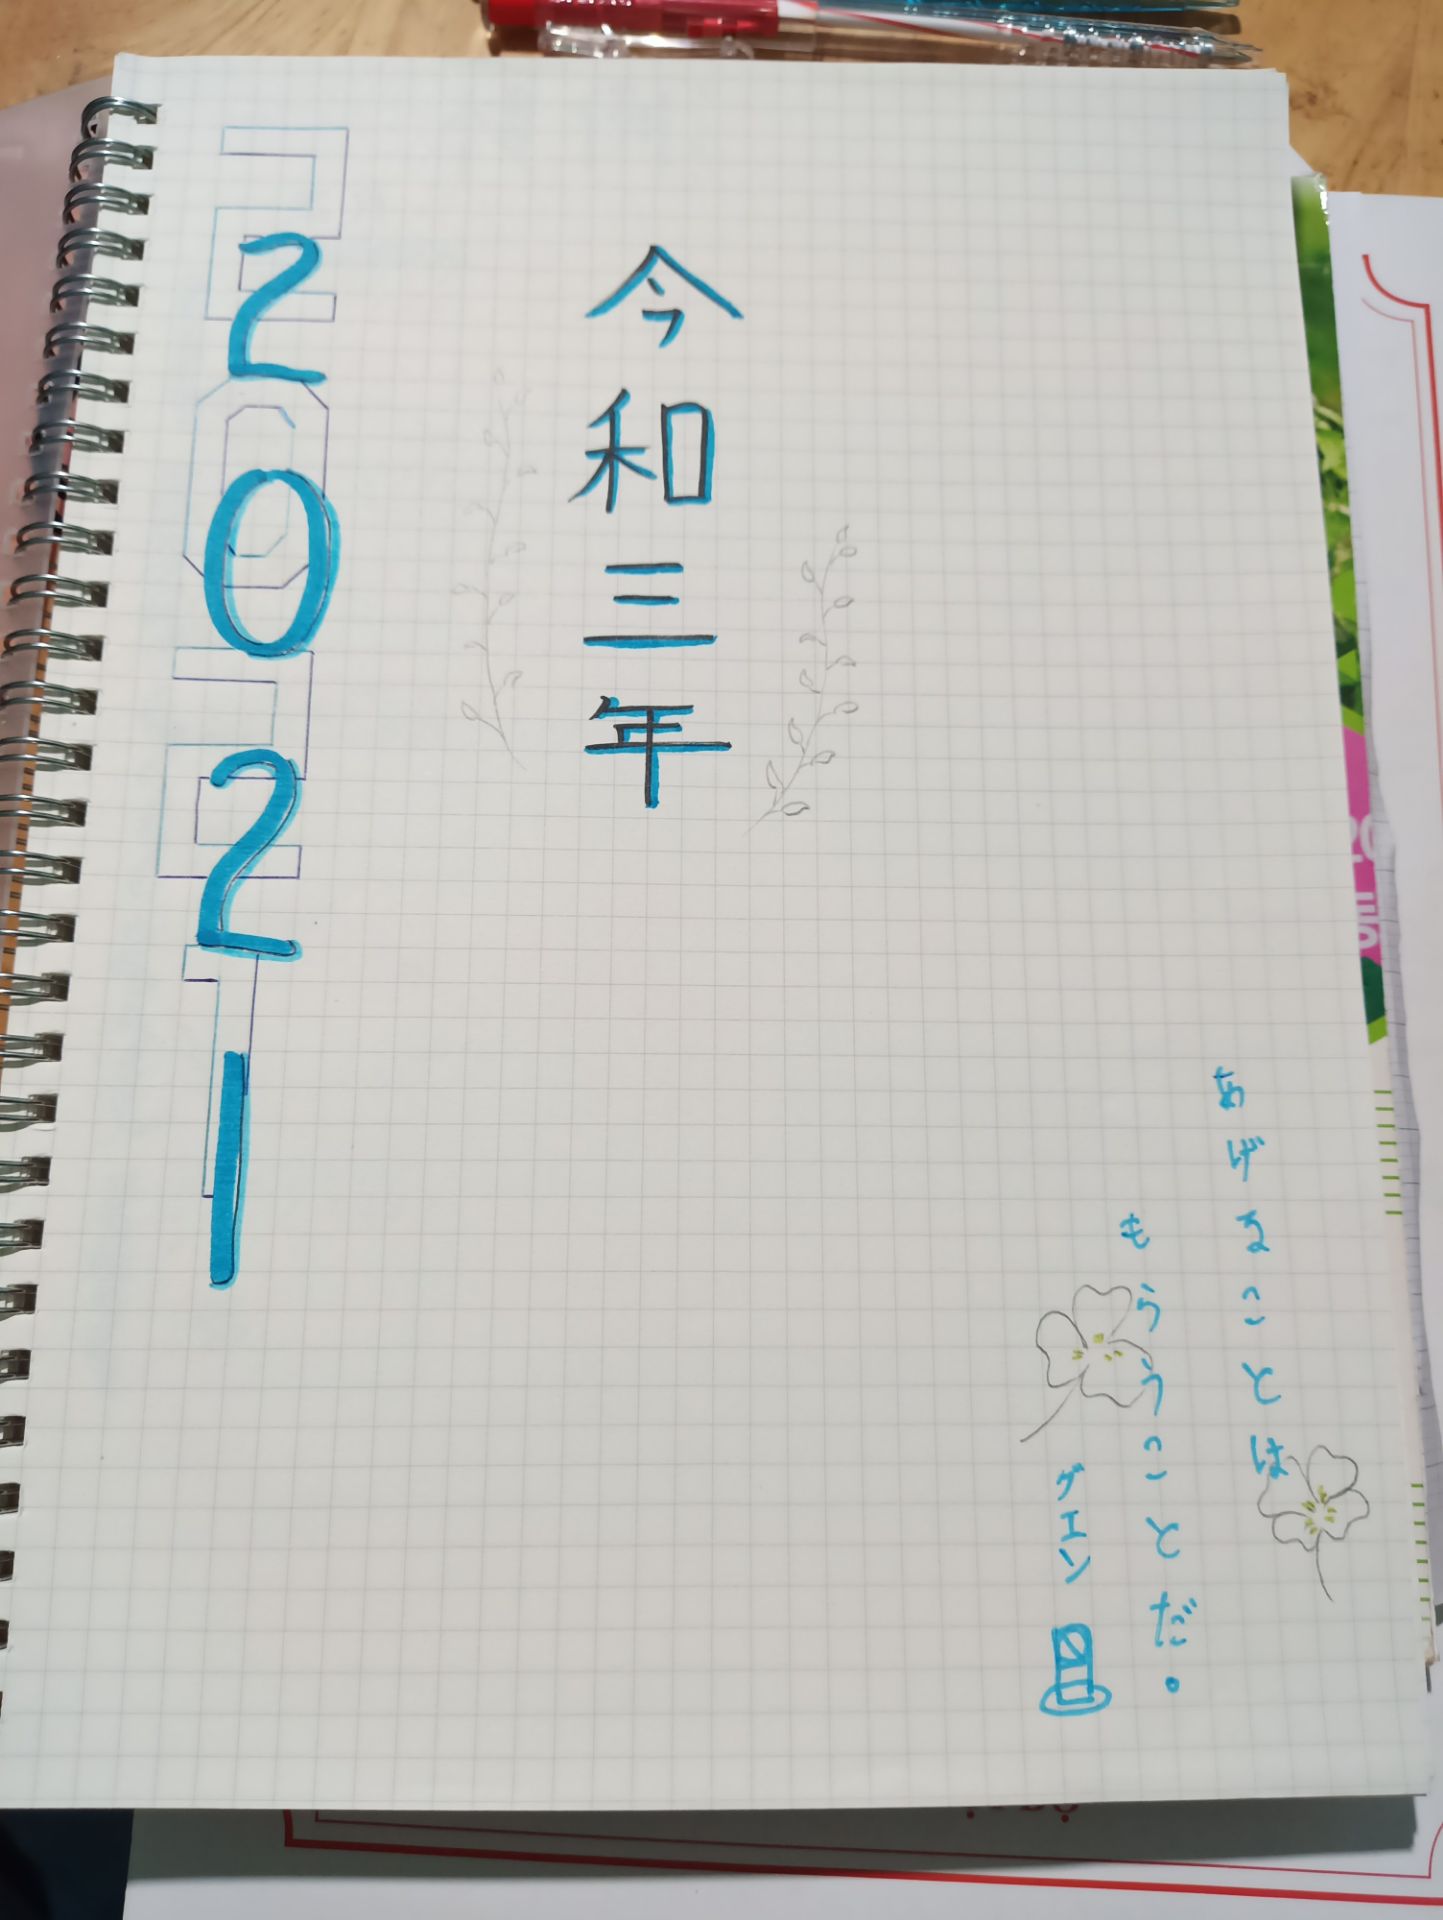 2021
2021
今和三年
あげることは
もらうことだ。
グエン